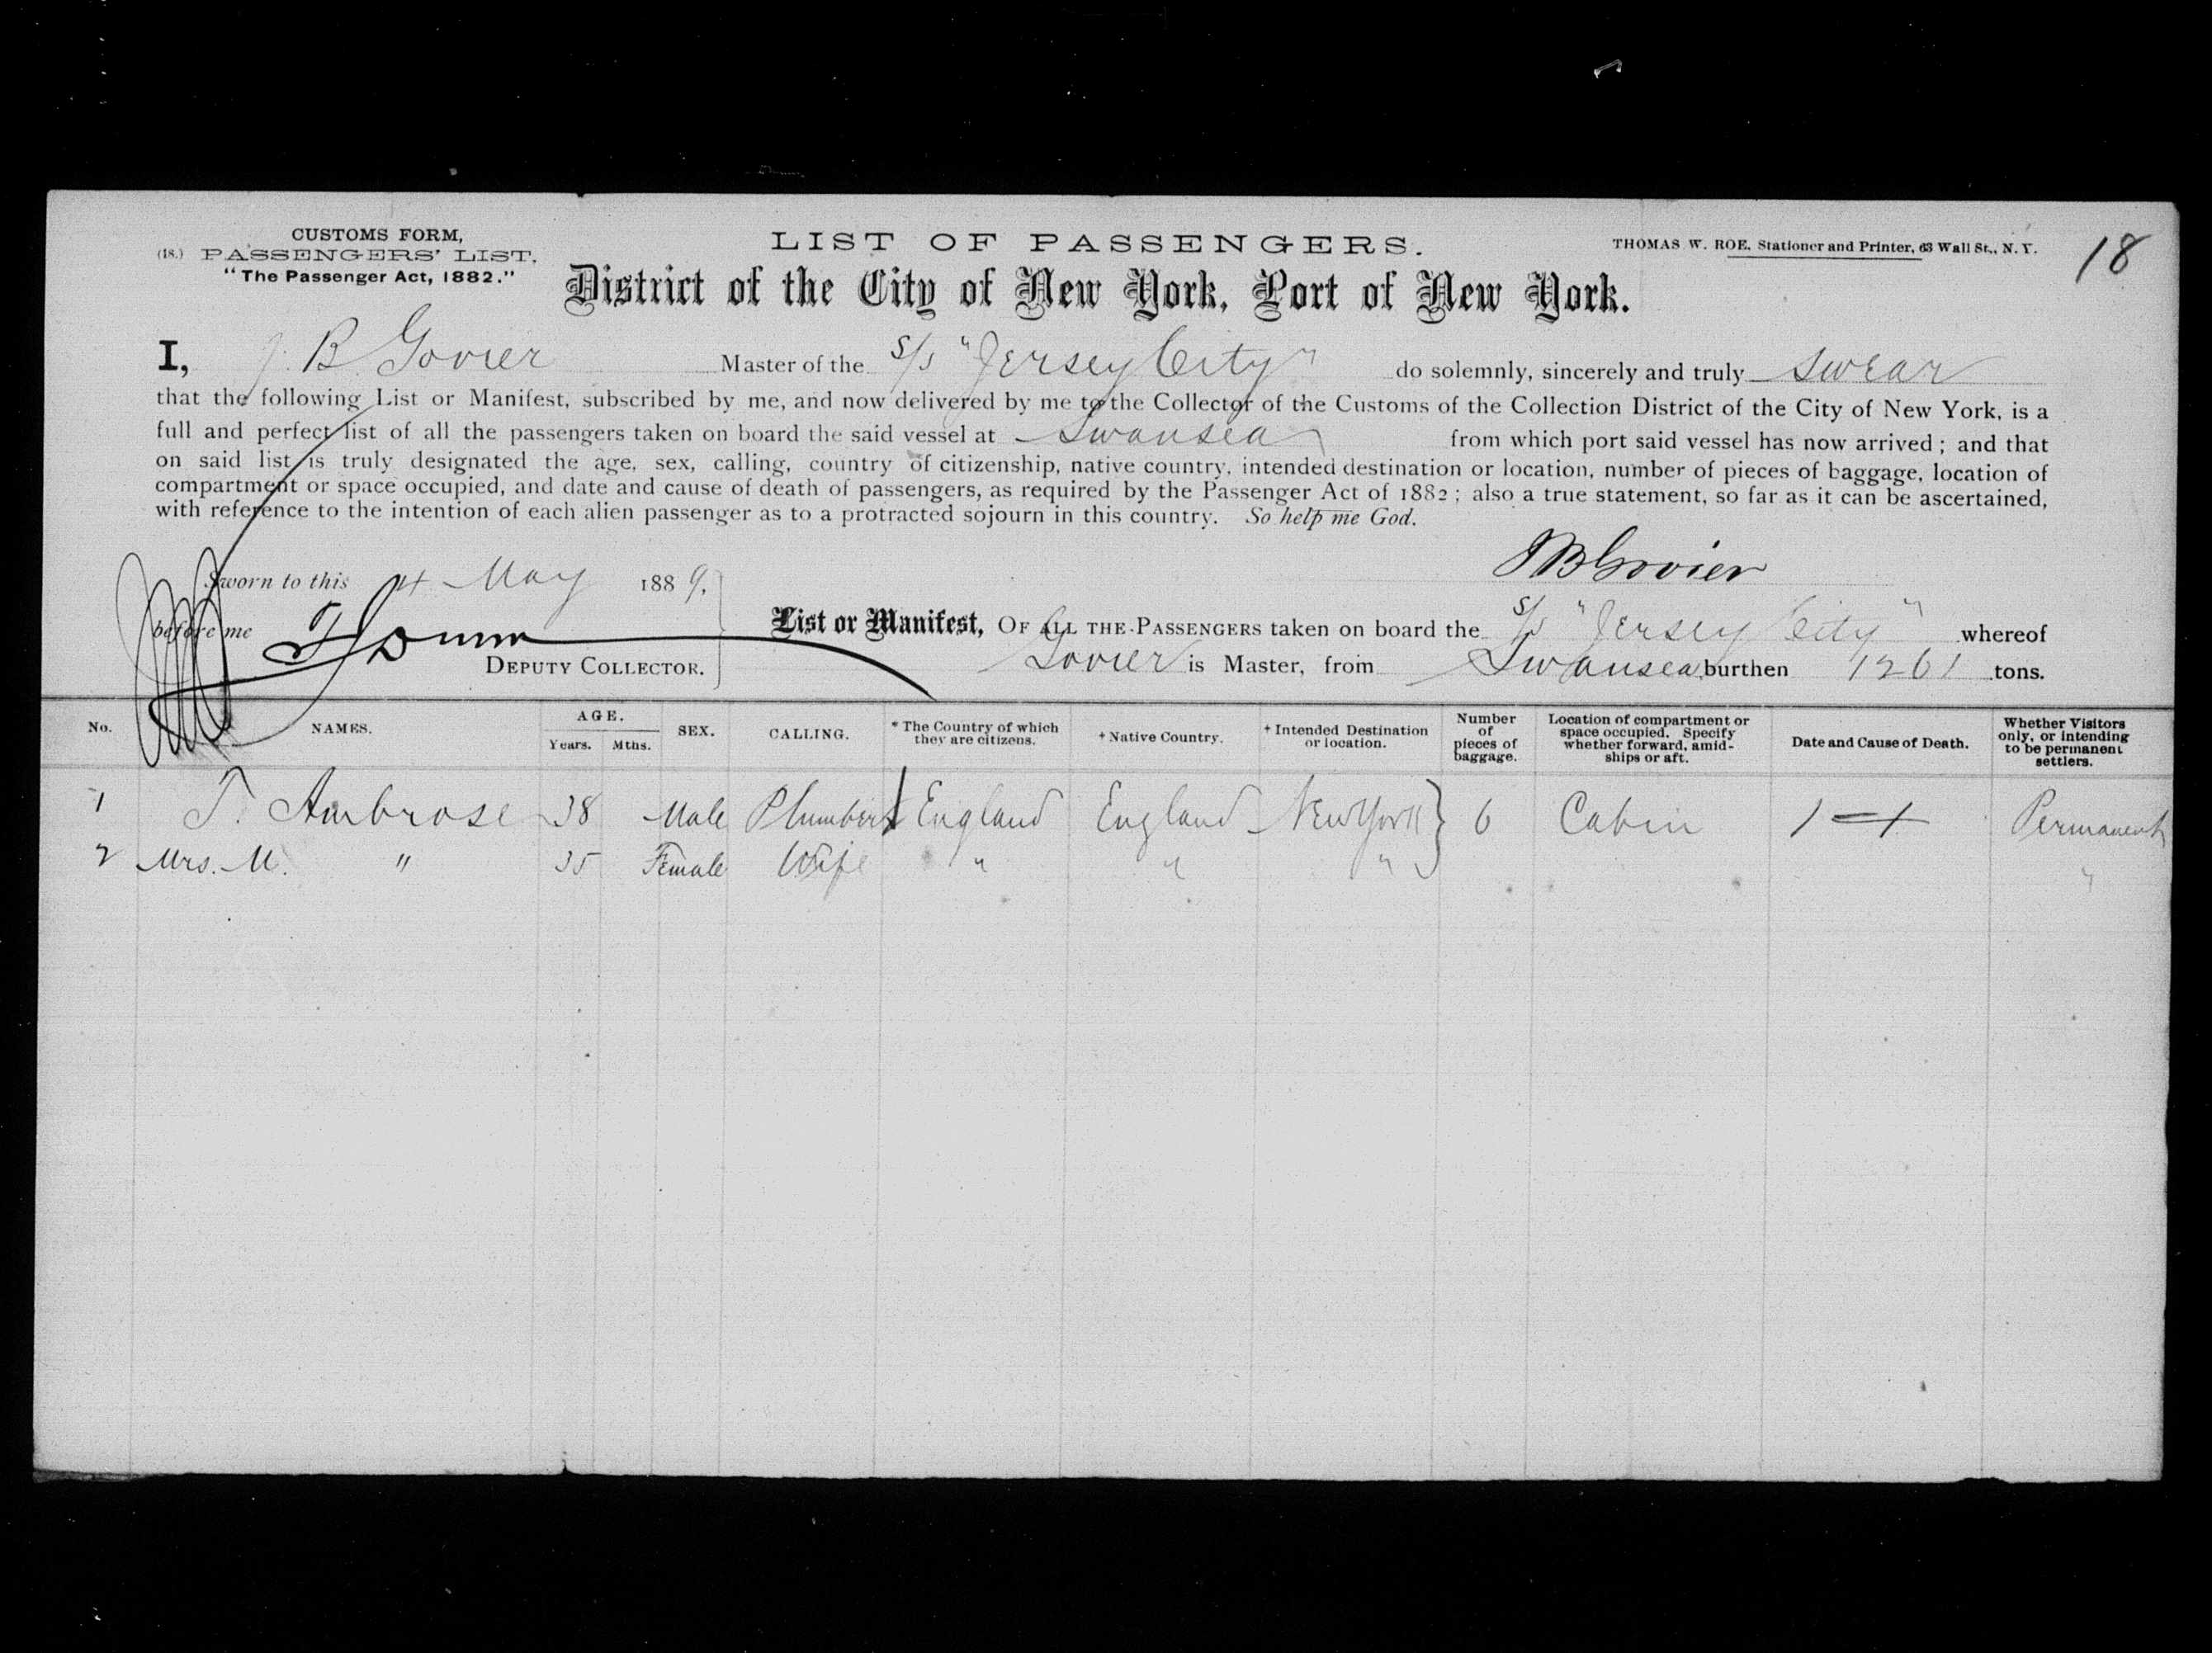 CUSTOMS FORM,
(18.) PASSENGERS' LIST.
"The Passenger Act, 1882."
LIST OF PASSENGERS.
THOMAS W. ROE, Stationer and Printer, 63 Wall St., N. Y.
18
District of the City of New York, Port of New York.
I, J. B. Govier Master of the S/S "Jersey City" do solemnly, sincerely and truly swear
that the following List or Manifest, subscribed by me, and now delivered by me to the Collector of the Customs of the Collection District of the City of New York, is a
full and perfect list of all the passengers taken on board the said vessel at Swansea from which port said vessel has now arrived; and that
on said list is truly designated the age, sex, calling, country of citizenship, native country, intended destination or location, number of pieces of baggage, location of
compartment or space occupied, and date and cause of death of passengers, as required by the Passenger Act of 1882; also a true statement, so far as it can be ascertained,
with reference to the intention of each alien passenger as to a protracted sojourn in this country. So help me God.
JB Govier
Sworn to this 4 May 1889,
before me
DEPUTY COLLECTOR.
List or Manifest, OF ALL THE PASSENGERS taken on board the S/S "Jersey City" whereof
Govier is Master, from Swansea, burthen 1261 tons.
No. NAMES. AGE. Years. Mths. SEX. CALLING. * The Country of which they are citizens. + Native Country. + Intended Destination or location. Number of pieces of baggage. Location of compartment or space occupied. Specify whether forward, amid-ships or aft. Date and Cause of Death. Whether Visitors only, or intending to be permanent settlers.
1 T. Ambrose 38 Male Plumber England England New York } 6 Cabin Permanent
2 Mrs. M. " 35 Female Wife " " " "